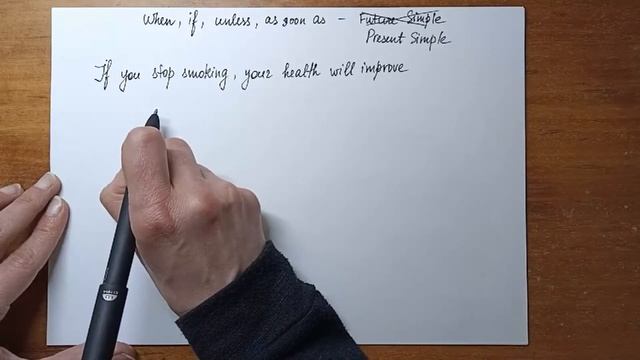 When, if, unless, as soon as - Future Simple
Present Simple
If you stop smoking, your health will improve